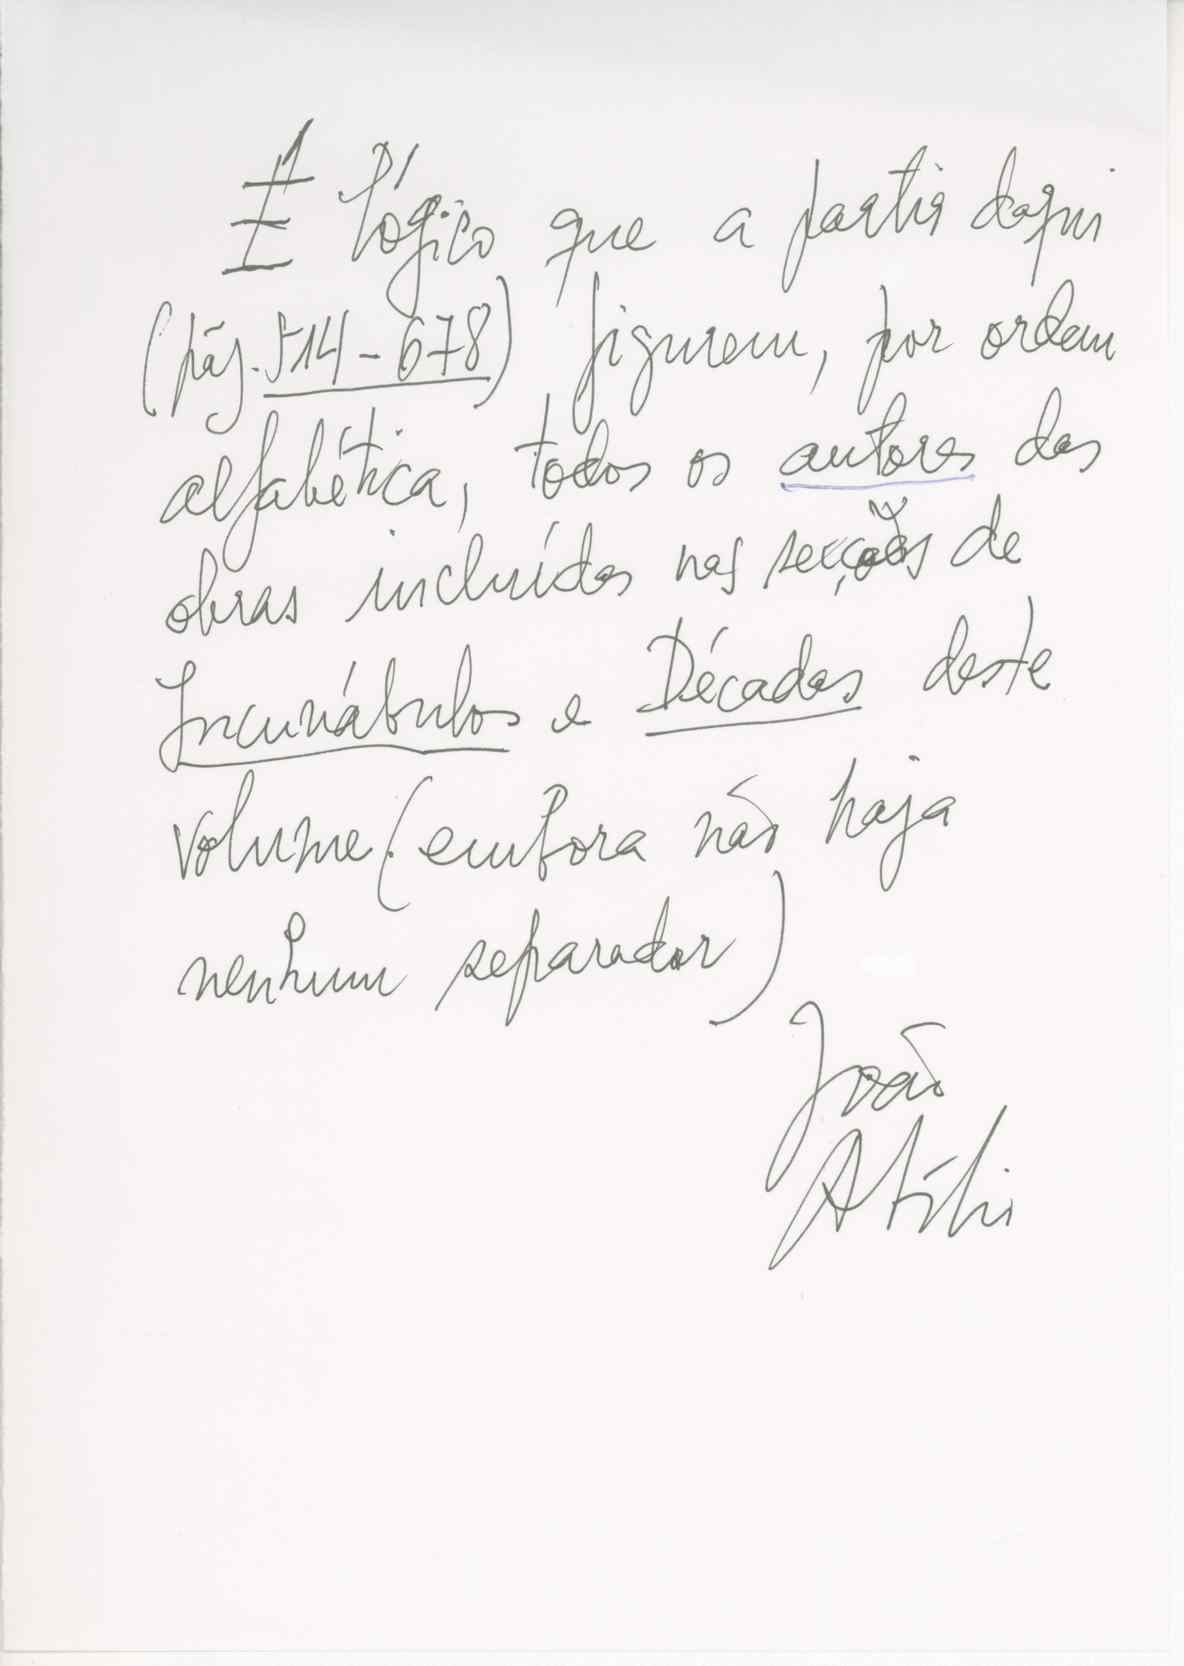 É lógico que a partir daqui
(pág. 514-678) figurem, por ordem
alfabética, todos os autores das
obras incluídas nas secções de
Incunábulos e Décadas deste
volume. (embora não haja
nenhum separador)
João
Atílio